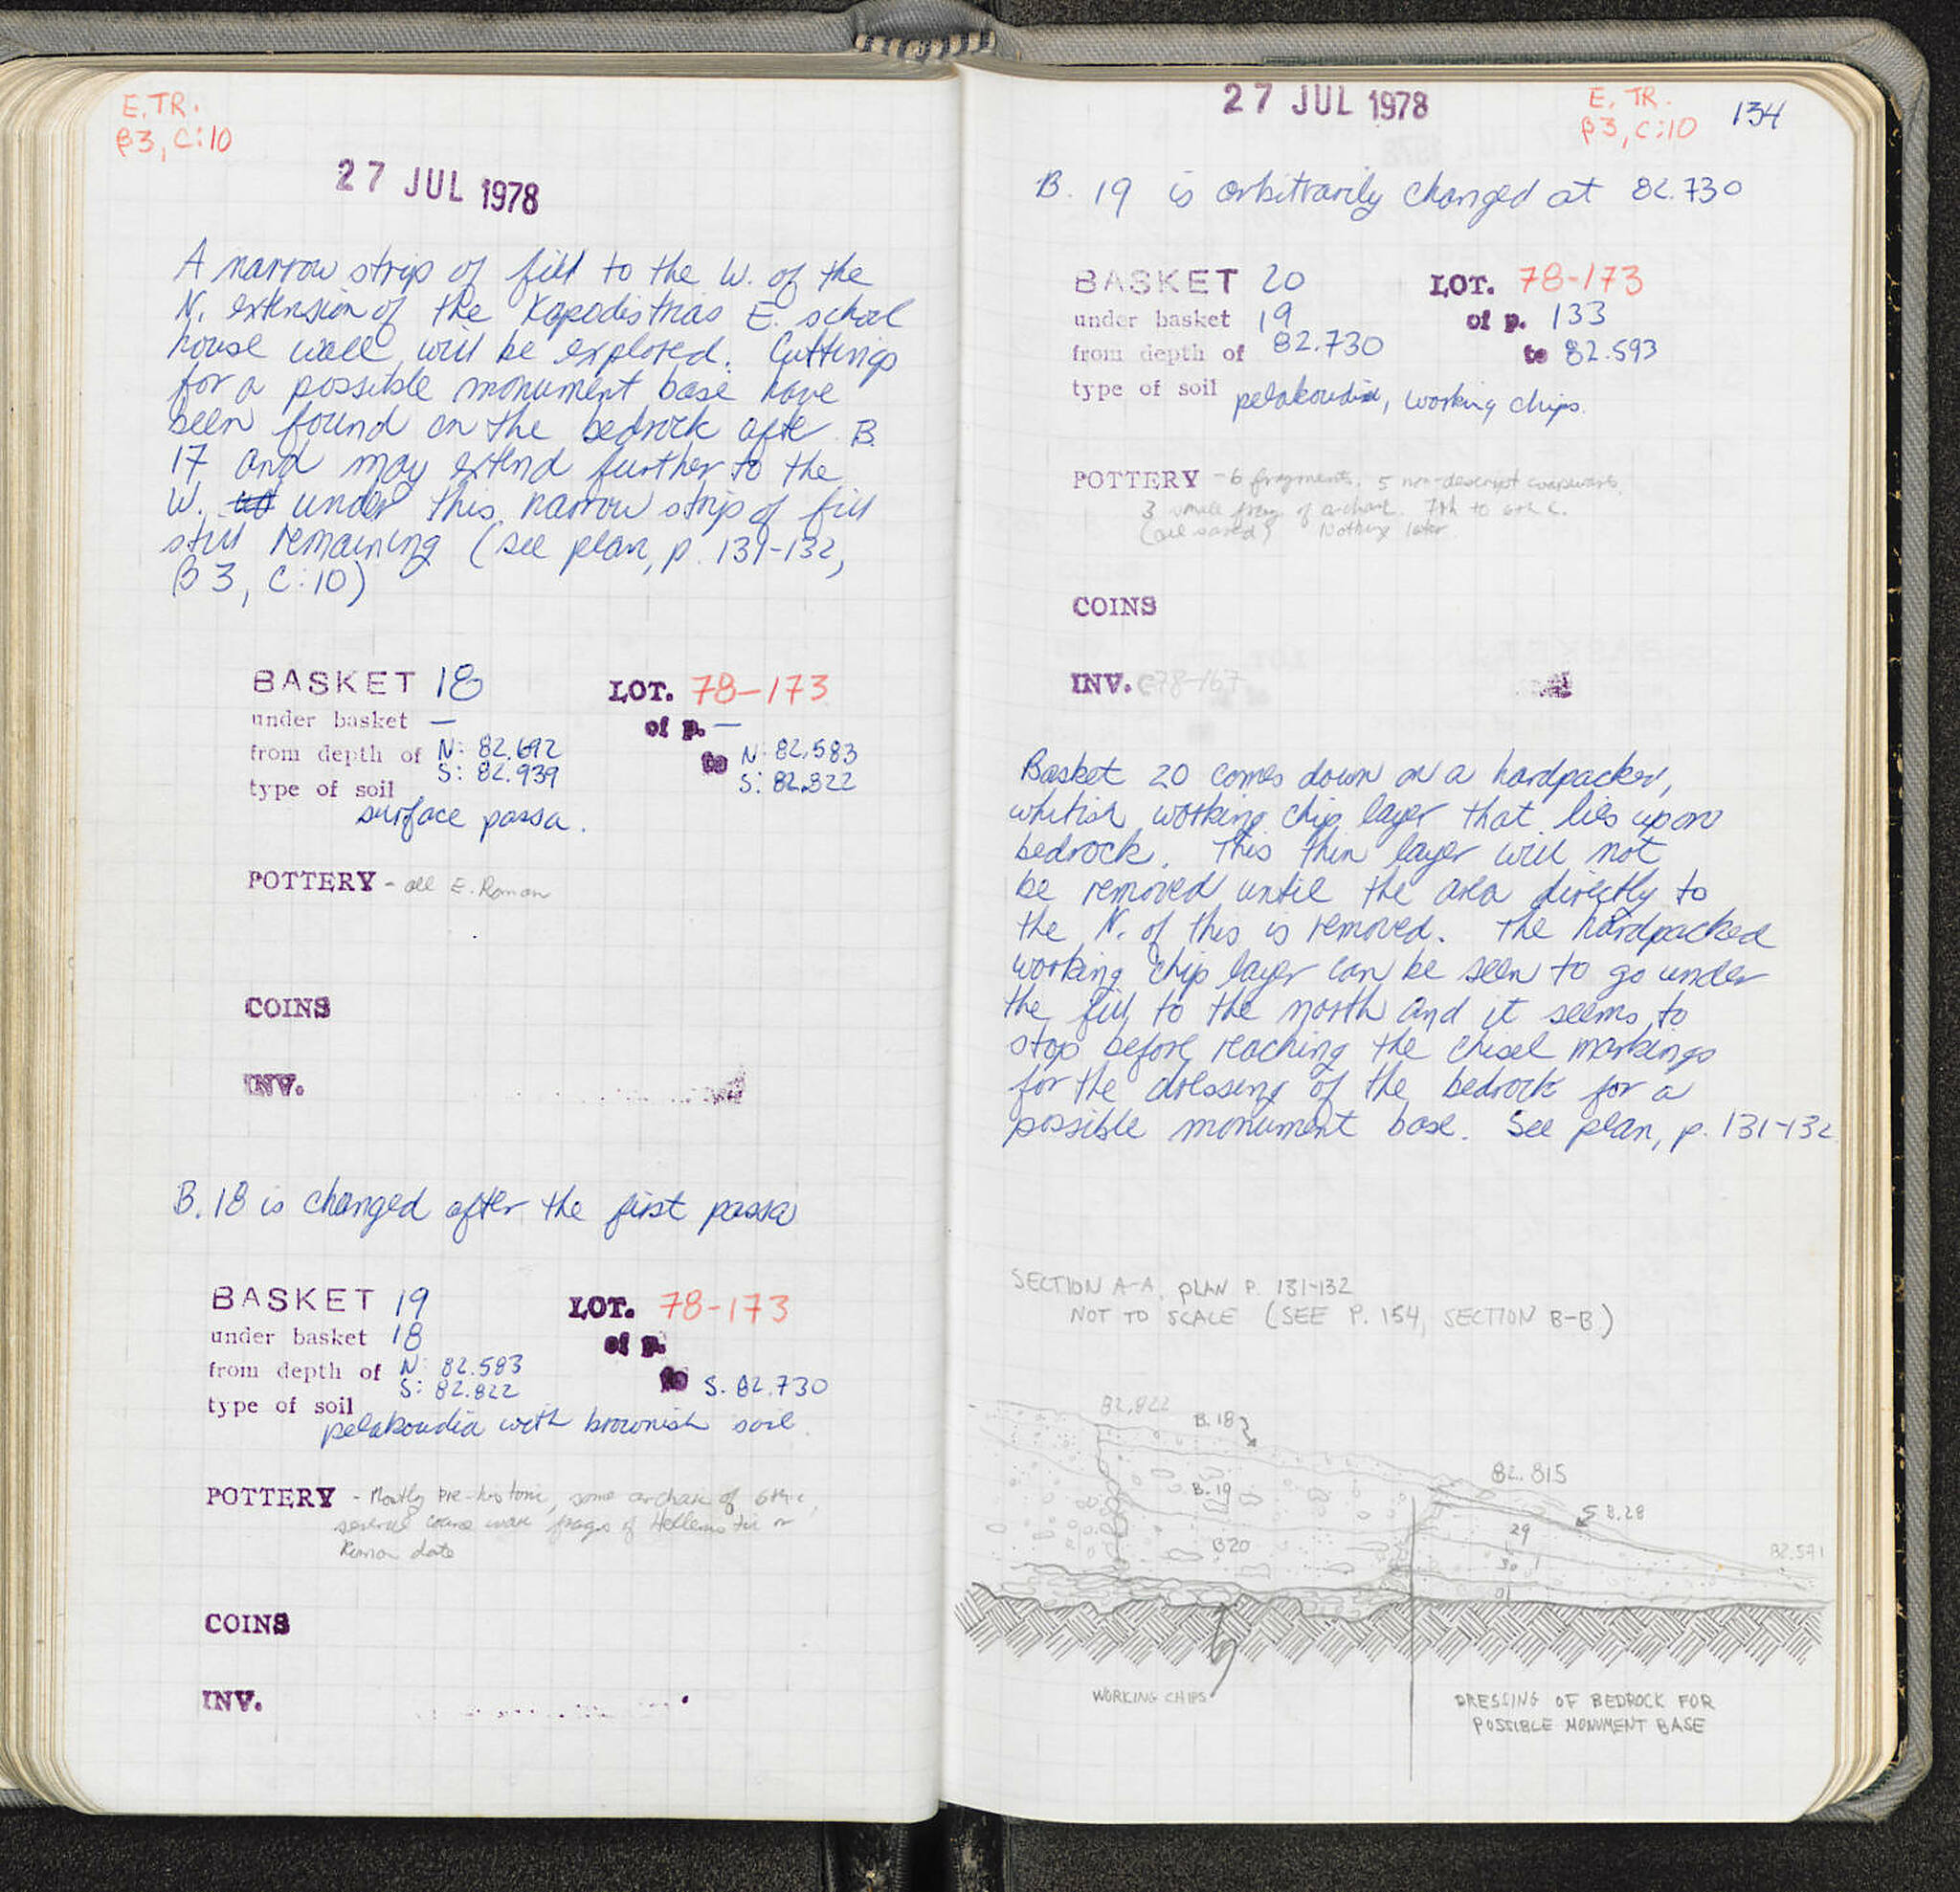 E.TR.
β3, C:10
27 JUL 1978
A narrow strip of fill to the W. of the
N. extension of the Kapodistrias E. school
house wall will be explored. Cuttings
for a possible monument base have
been found on the bedrock after B.
17 and may extend further to the
W. under this narrow strip of fill
still remaining (see plan, p. 131-132,
β3, C:10)
BASKET 18 LOT. 78-173
under basket — of p. —
from depth of N: 82.692 to N: 82.583
S: 82.939 S: 82.822
type of soil
surface passa.
POTTERY - all E. Roman
COINS
INV.
B. 18 is changed after the first passa
BASKET 19 LOT. 78-173
under basket 18 of p.
from depth of N: 82.583 to S. 82.730
S: 82.822
type of soil
pelakoudia with brownish soil.
POTTERY - Mostly pre-historic, some archaic of 6th c.,
several coarse ware frags of Hellenistic or
Roman date
COINS
INV.
27 JUL 1978
E. TR.
β3, C:10
134
B. 19 is arbitrarily changed at 82.730
BASKET 20 LOT. 78-173
under basket 19 of p. 133
from depth of 82.730 to 82.593
type of soil pelakoudia, working chips.
POTTERY - 6 fragments, 5 non-descript coarseware,
3 small frags of archaic. 7th to 6th C.
(all saved) Nothing later.
COINS
INV. C78-167
Basket 20 comes down on a hardpacked,
whitish working chip layer that lies upon
bedrock. This thin layer will not
be removed until the area directly to
the N. of this is removed. The hardpacked
working chip layer can be seen to go under
the fill to the north and it seems to
stop before reaching the chisel markings
for the dressing of the bedrock for a
possible monument base. See plan, p. 131-132
SECTION A-A, PLAN P. 131-132
NOT TO SCALE (SEE P. 154, SECTION B-B)
82.822
B.18
82.815
B.19
B.28
29
B20
30
82.571
WORKING CHIPS
DRESSING OF BEDROCK FOR
POSSIBLE MONUMENT BASE